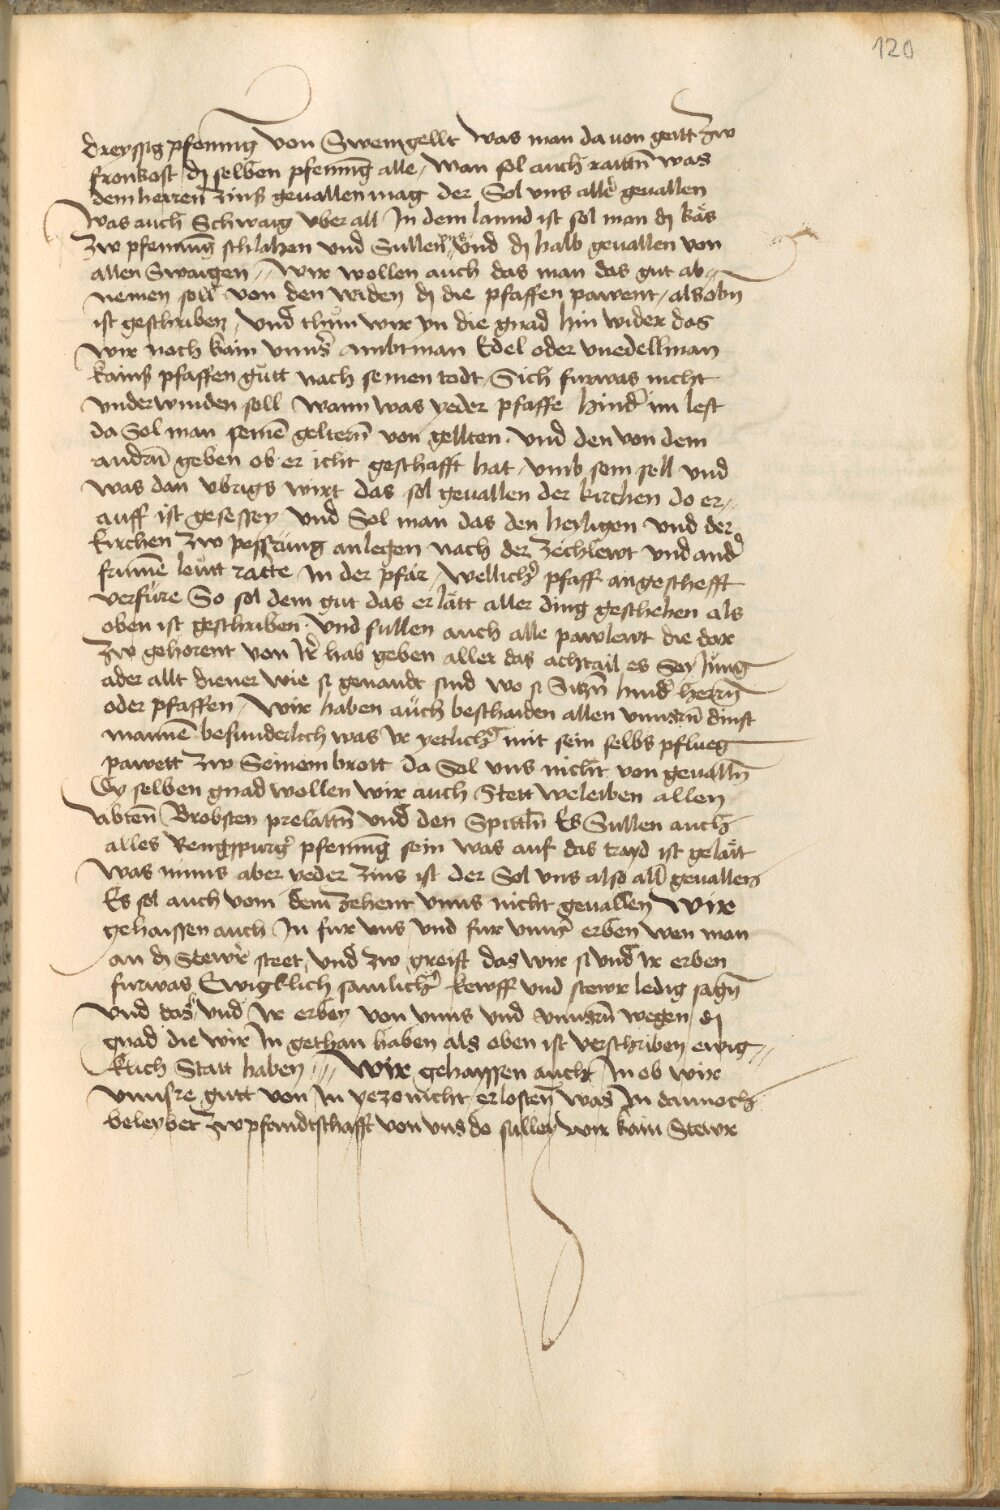 120
dreyssig pfenning von Sweingellt was man da uon geitt zw
fronkost dj selben pfenning alle, Man sol auch raittn was
dem herren zinß geuallen mag der Sol uns alle geuallen
Was auch Schwaig vber all In dem lannd ist sol man dj käs
zw pfenning schlahen und Sullen vns und dj halb geuallen von
allen Swaigen // Wir wollen auch das man das gut ab //
nemen soll von den widen dj die pfaffen pawent, als obn
ist geschriben, Und thun wir yn die gnad hin wider das
wir noch kain unns' ambtman Edel oder vnedellman
kainß pfaffen gutt nach seinen todt, Sich furwas nicht
underwinden soll Wann was yeder pfaffe hind' im lest
da Sol man seinē geltern von gellten. Und den von dem
andrn geben ob er icht geschafft hat, umb sein sell und
was dan vbrigs wirt das sol geuallen der kirchen do er /
auff ist gesessen Und Sol man das den heyligen und der
kirchen zw pessrung anlegen nach der zechlewt und and'
frumē leutt ratte In der pfar, Wellich' pfaff an geschefft
verfure So sol dem gut das er lätt aller ding geschehen als
oben ist geschriben. Und sullen auch alle pawlewt die dar
zw gehorent von Ir' hab geben aller das achtail es Sey Jung
ader allt diener wie si genandt sind wo si Sitzn hind' herrn
oder pfaffen, Wir haben auch beschaiden allen unnsrn dinst
mannē besunderlich was Ir yetlich' mit sein selbs pflueg
pawett zw Seinem brott da Sol uns nicht von geualln
Dy selben gnad wollen wir auch Stett weleiben allen
Abten Brobsten prelattn und den Spittln Es Sullen auch
alles Rengspurg' pfenning sein was auf das trayd ist gelätt
Was minns aber yeder zins ist der Sol uns also all' geuallen
Es sol auch vom dem zehent unns nicht geuallen Wir
gehaissen auch In fur uns und fur unns' erben wen man
an dj Stewr steet, und zw greift das wir si und Ir erben
furwas Ewigklich samlich' kewff und stewr ledig sagn
Und das und Ir erben von unns und unnsrn wegen dj
gnad die wir In gethan haben als oben ist verschriben ewig //
klich Statt haben //// Wir gehayssen auch In ob wir
unnsre gutt von In yezo nicht erlosten was In dannoch
beleybet zw pfandtschafft von uns do sullen wir kain Stewr